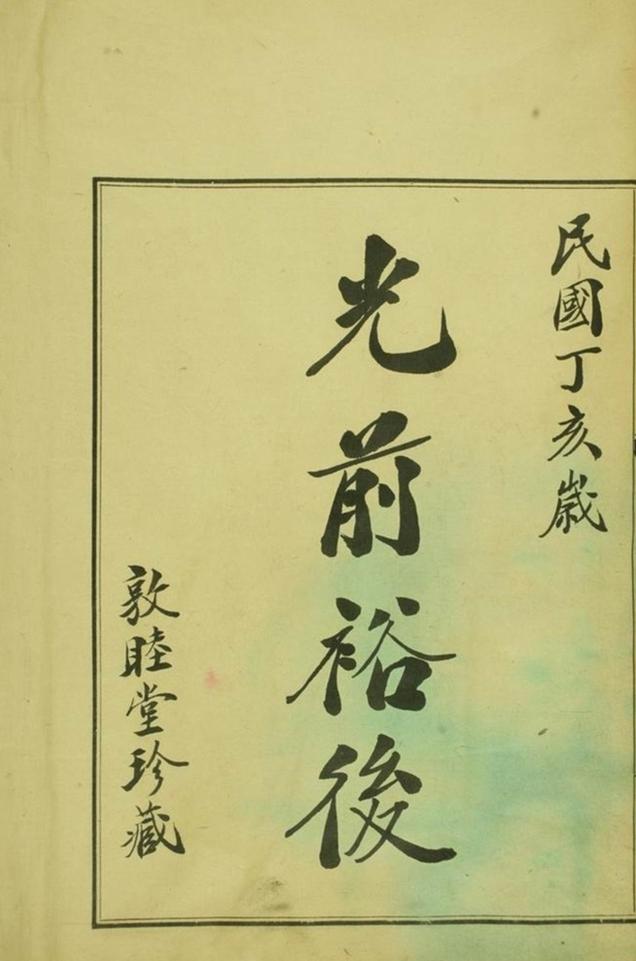 民國丁亥歲
光前裕後
敦睦堂珍藏